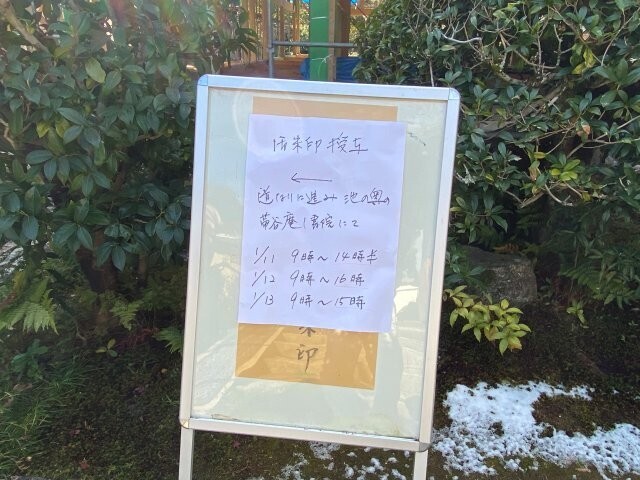 御朱印授与
←
道なりに進み 池の奥の
書院にて
1/11 9時〜14時半
1/12 9時〜16時
1/13 9時〜15時
朱印